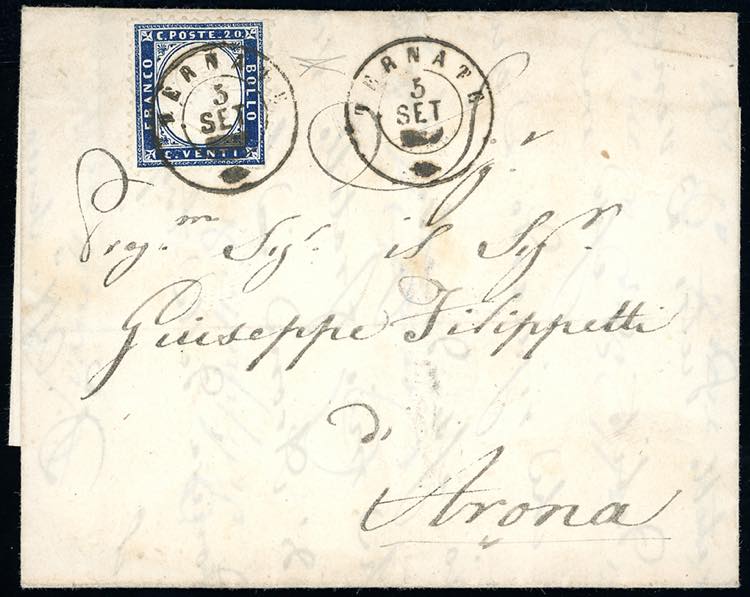 C. POSTE. 20.
FRANCO
BOLLO
C. VENTI
TERNATE
5
SET
TERNATE
5
SET
Preg.m Sig.r il Sig.r
Giuseppe Filippetti
di
Arona